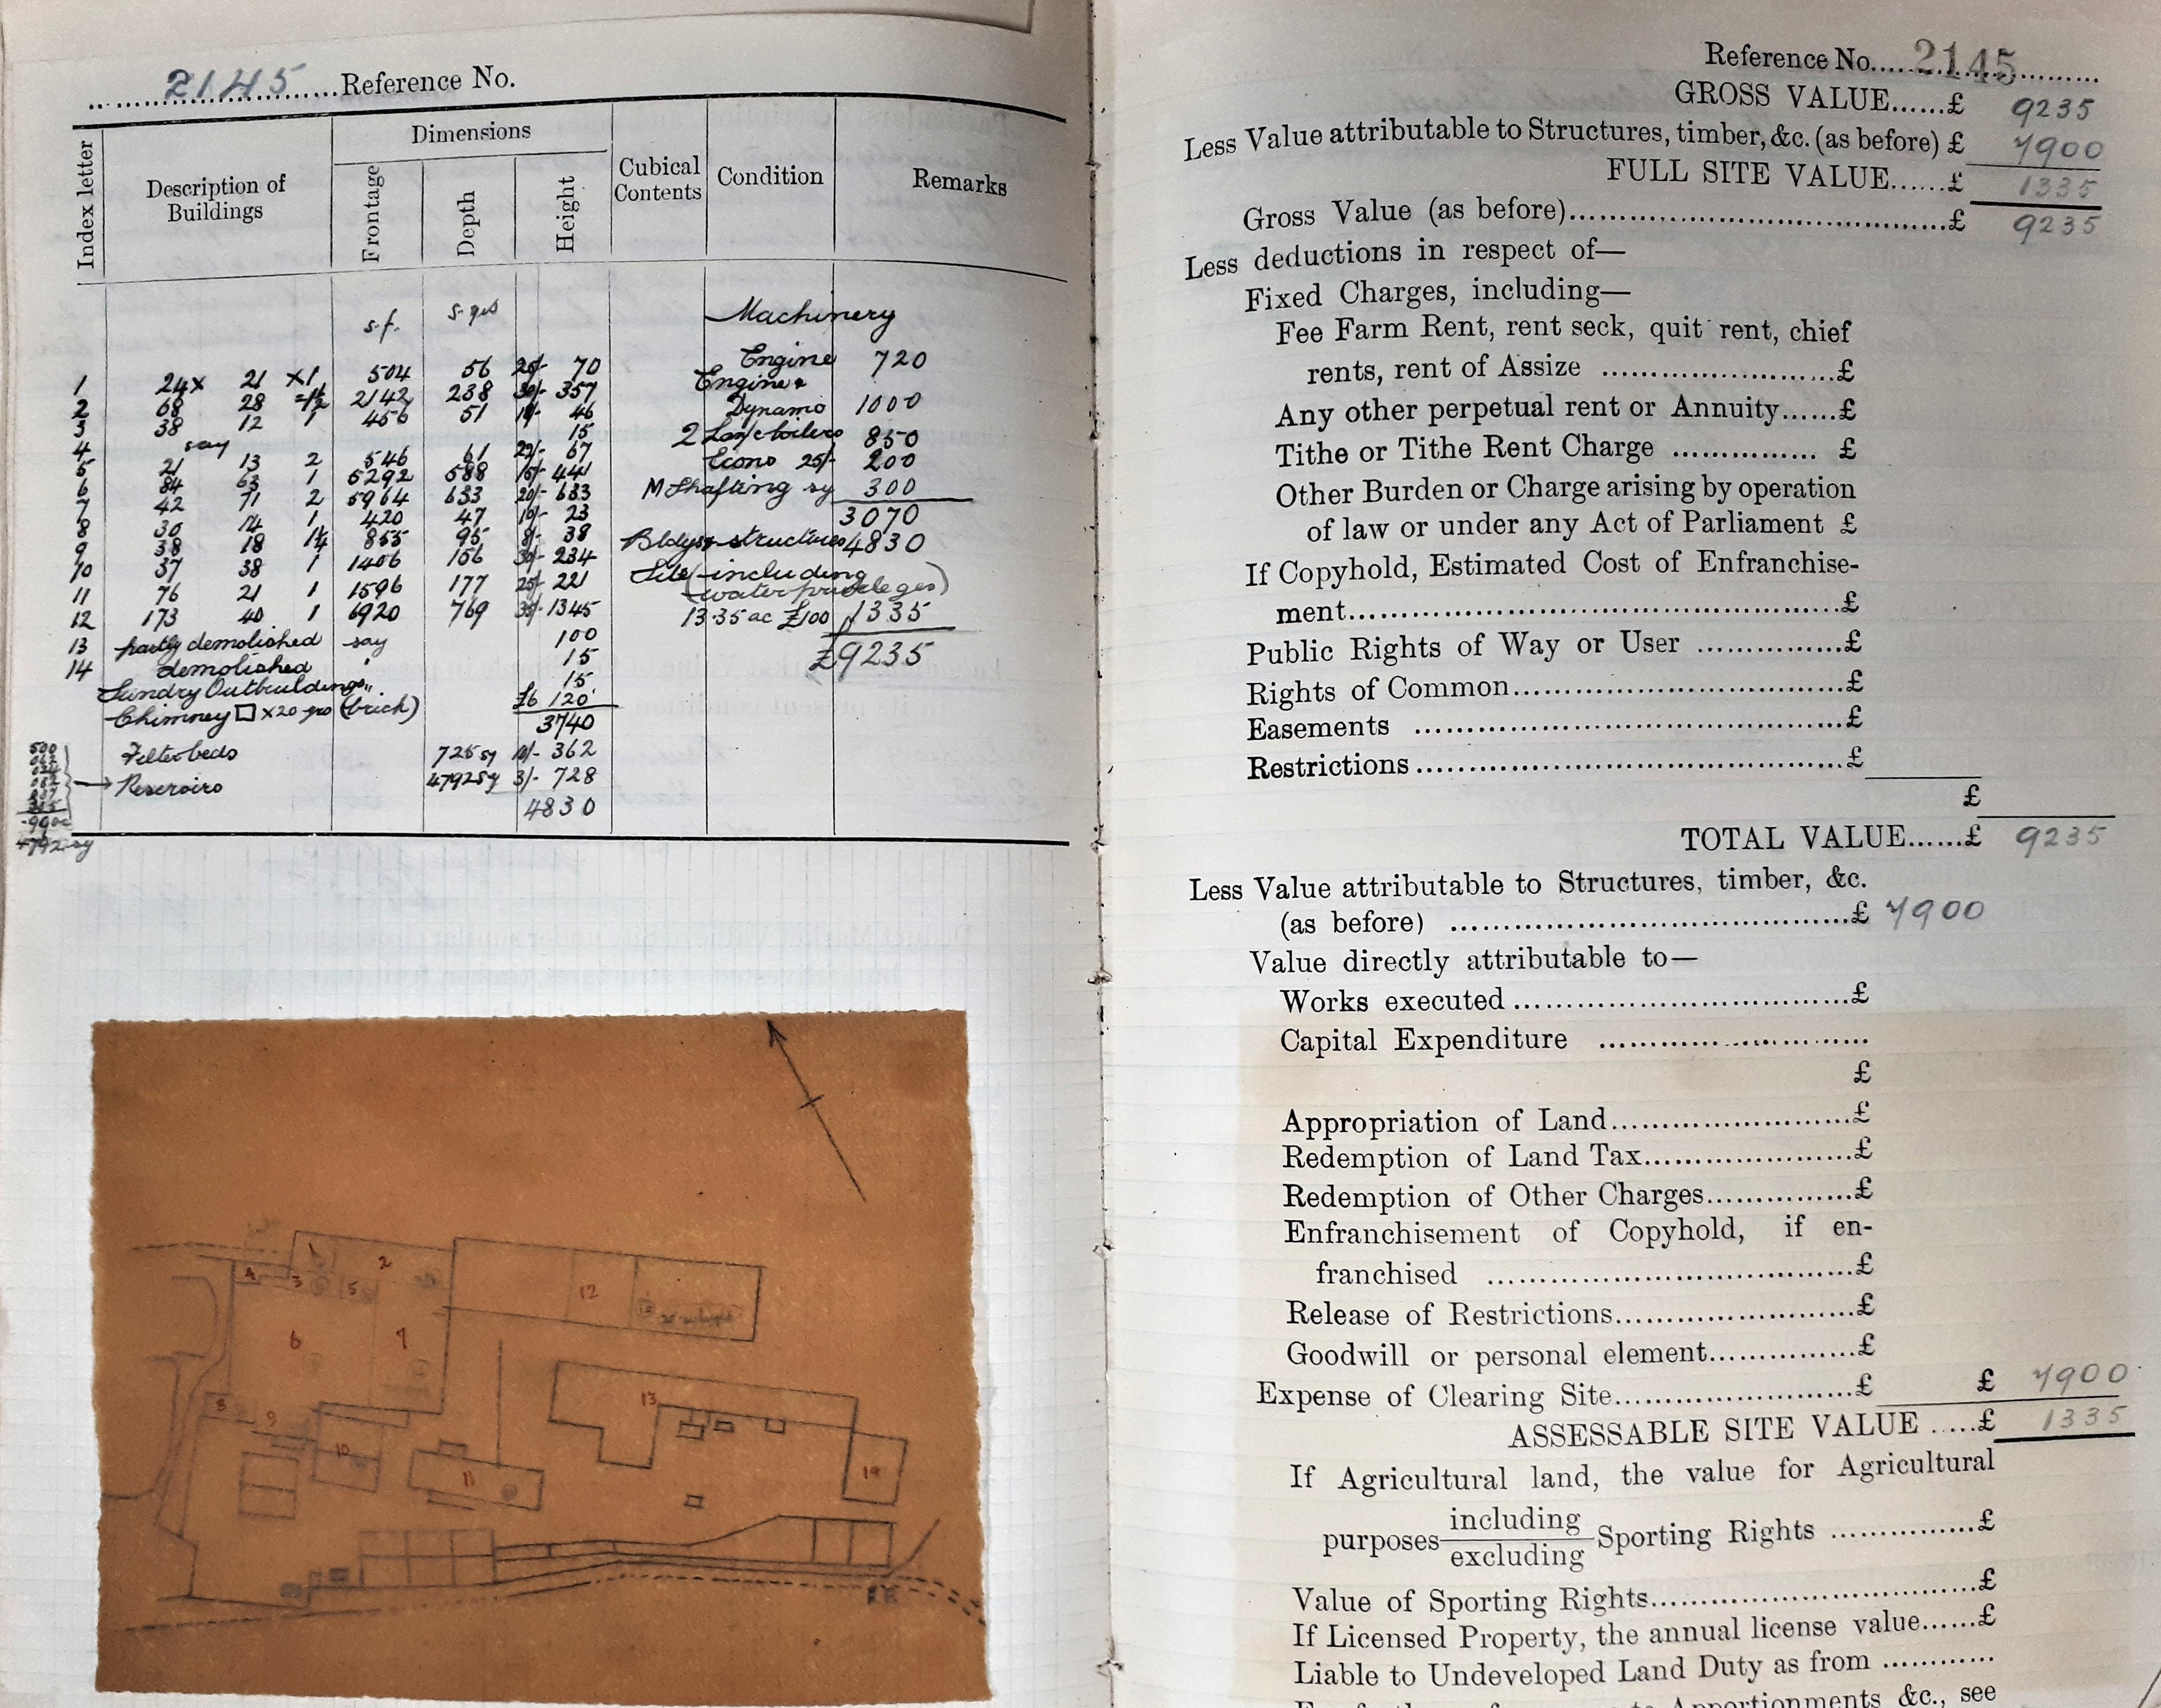 2145 Reference No.
Index letter
Description of Buildings
Dimensions
Frontage
Depth
Height
Cubical Contents
Condition
Remarks
s.f.
Machinery
1 24 x 21 x 1 504 56 25/- 70 Engine 720
2 68 28 =1½ 2142 238 30/- 357 Engine &
3 38 12 1 456 51 46 Dynamo 1000
4 say 15 2 Lan boilers 850
5 21 13 2 546 61 22/- 67 Econo 25/- 200
6 84 63 1 5292 588 15/- 441 M Shafting sy 300
7 42 71 2 5964 633 20/- 633
8 30 14 1 420 47 10/- 23 3070
9 38 18 1¼ 855 95 8/- 38 Bldgs & structures 4830
10 37 38 1 1406 156 30/- 234 Site (including
11 76 21 1 1596 177 25/- 221 water privileges)
12 173 40 1 6920 769 35/- 1345 13.35 ac £100 1335
13 partly demolished say 100
14 demolished " 15 £9235
Sundry Outbuildings " 15
Chimney □ x 20 (brick) £6 120
3740
Filter beds 725 sy 10/- 362
Reservoirs 4792 sy 3/- 728
4830
500
4792 sy
1
2
4
3
5
12
6
7
13
8
9
10
11
14
Reference No. 2145
GROSS VALUE......£ 9235
Less Value attributable to Structures, timber, &c. (as before) £ 7900
FULL SITE VALUE......£ 1335
Gross Value (as before)......£ 9235
Less deductions in respect of—
Fixed Charges, including—
Fee Farm Rent, rent seck, quit rent, chief
rents, rent of Assize ......£
Any other perpetual rent or Annuity......£
Tithe or Tithe Rent Charge ......£
Other Burden or Charge arising by operation
of law or under any Act of Parliament £
If Copyhold, Estimated Cost of Enfranchise-
ment......£
Public Rights of Way or User ......£
Rights of Common......£
Easements ......£
Restrictions......£
£
TOTAL VALUE......£ 9235
Less Value attributable to Structures, timber, &c.
(as before) ......£ 7900
Value directly attributable to—
Works executed......£
Capital Expenditure ......
£
Appropriation of Land......£
Redemption of Land Tax......£
Redemption of Other Charges......£
Enfranchisement of Copyhold, if en-
franchised ......£
Release of Restrictions......£
Goodwill or personal element......£
Expense of Clearing Site......£ £ 7900
ASSESSABLE SITE VALUE .....£ 1335
If Agricultural land, the value for Agricultural
purposes including excluding Sporting Rights ......£
Value of Sporting Rights......£
If Licensed Property, the annual license value......£
Liable to Undeveloped Land Duty as from ......
Apportionments &c., see